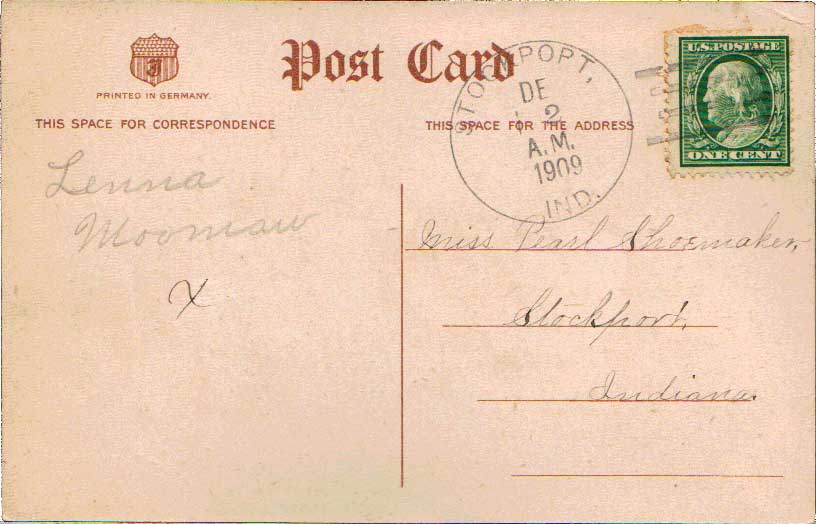 Post Card
PRINTED IN GERMANY.
THIS SPACE FOR CORRESPONDENCE
THIS SPACE FOR THE ADDRESS
STOCKPORT,
DE
2
A.M.
1909
IND.
U.S. POSTAGE
ONE CENT
Lenna
Moomaw
X
Miss Pearl Shoemaker,
Stockport,
Indiana.